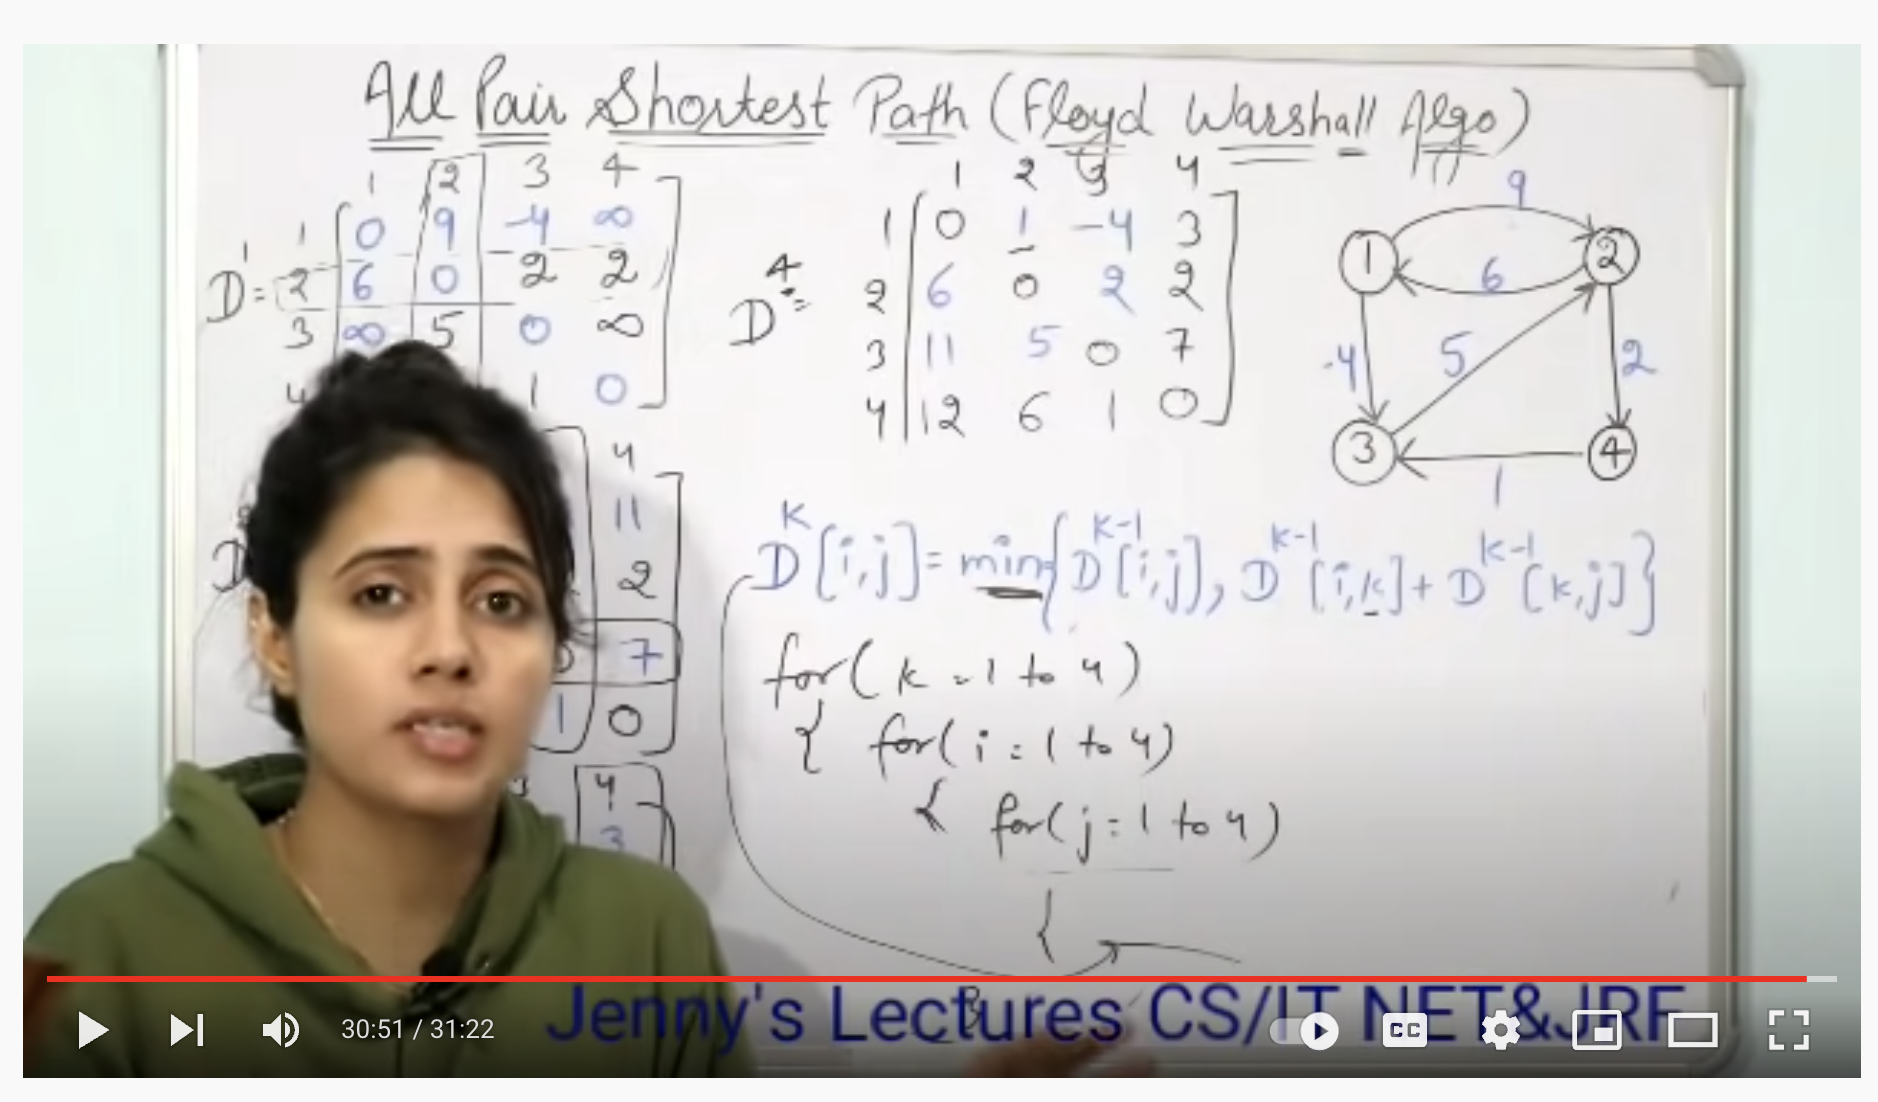 All Pair Shortest Path (Floyd Warshall Algo)
1 2 3 4
D¹= 1 0 9 -4 ∞
2 6 0 2 2
3 ∞ 5 0 ∞
4 1 0
4
11
D 2
7
1 0
4
3
1 2 3 4
D⁴= 1 0 1 -4 3
2 6 0 2 2
3 11 5 0 7
4 12 6 1 0
9
1 2
6
-4 5 2
3 4
1
Dᴷ[i,j] = min{Dᴷ⁻¹[i,j), Dᴷ⁻¹[i,k]+ Dᴷ⁻¹[k,j]}
for(k=1 to 4)
{ for(i=1 to 4)
{ for(j=1 to 4)
{
Jenny's Lectures CS/IT NET&JRF
30:51 / 31:22
CC